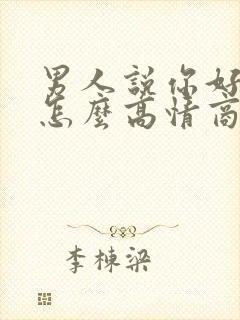 男人說你好
怎麼高情商
李棟梁